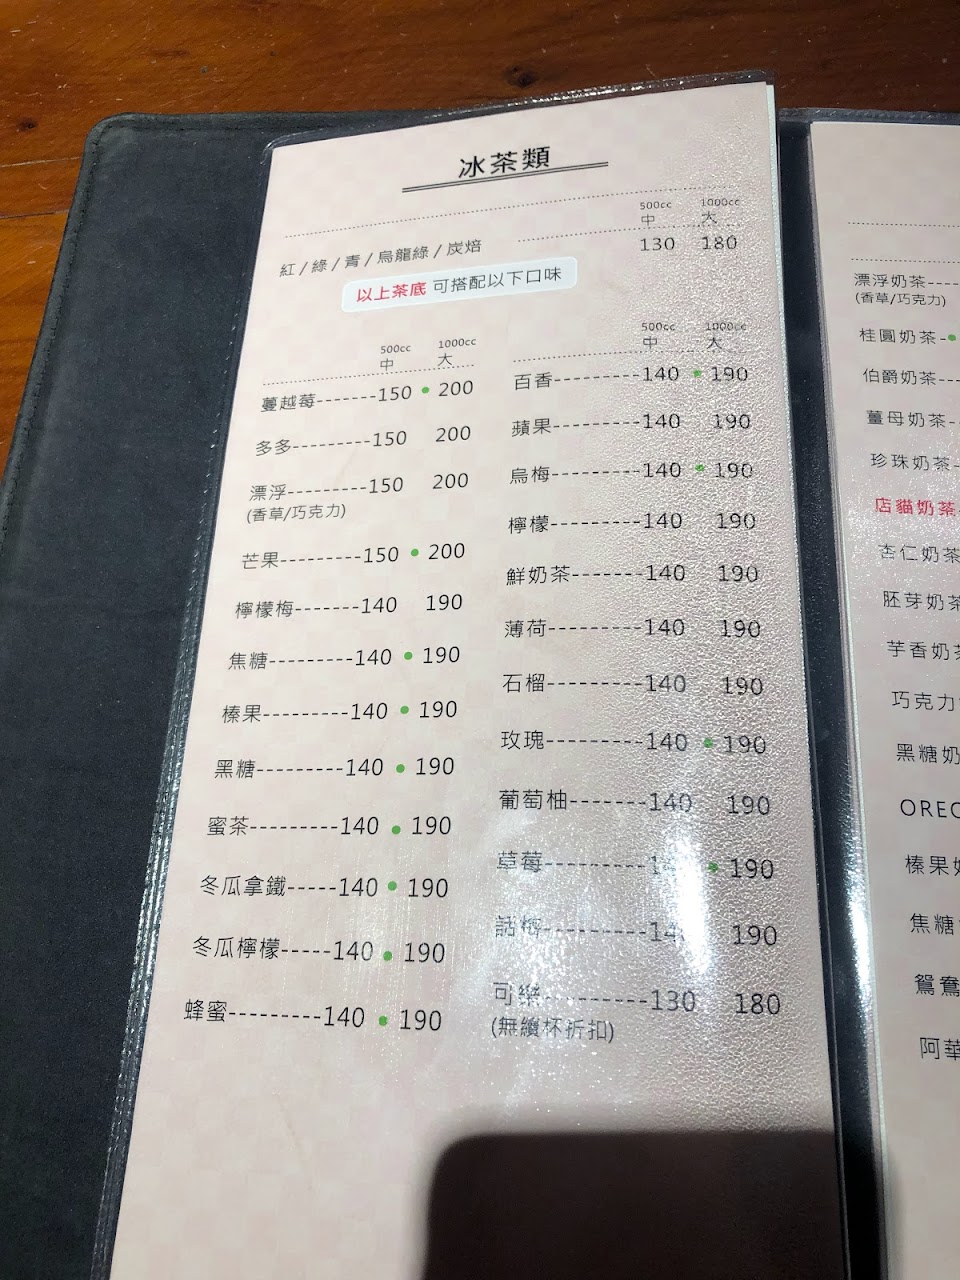 冰茶類
500cc 1000cc
中 大
紅/綠/青/烏龍綠/炭焙 130 180
以上茶底 可搭配以下口味
500cc 1000cc
中 大
蔓越莓-------150 • 200
多多---------150 200
漂浮---------150 200
(香草/巧克力)
芒果---------150 • 200
檸檬梅-------140 190
焦糖---------140 • 190
榛果---------140 • 190
黑糖---------140 • 190
蜜茶---------140 • 190
冬瓜拿鐵-----140 • 190
冬瓜檸檬-----140 • 190
蜂蜜---------140 • 190
500cc 1000cc
中 大
百香---------140 • 190
蘋果---------140 190
烏梅---------140 • 190
檸檬---------140 190
鮮奶茶-------140 190
薄荷---------140 190
石榴---------140 190
玫瑰---------140 • 190
葡萄柚-------140 190
草莓---------14 • 190
話梅---------14 190
可樂---------130 180
(無續杯折扣)
漂浮奶茶----
(香草/巧克力)
桂圓奶茶-•
伯爵奶茶---
薑母奶茶--
珍珠奶茶-
店貓奶茶
杏仁奶茶
胚芽奶茶
芋香奶茶
巧克力
黑糖奶
OREO
榛果奶
焦糖
鴛鴦
阿華